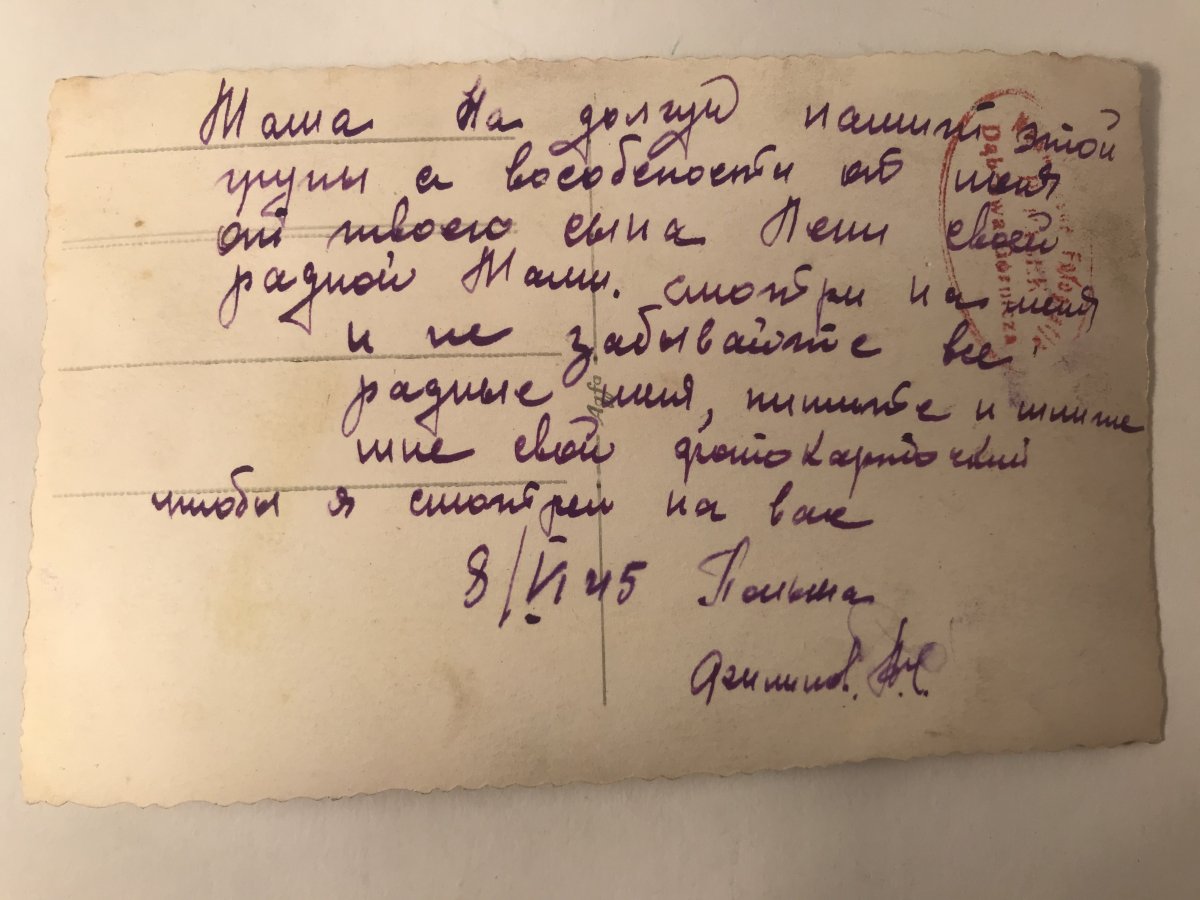 Маша На долгую памить этой
групы а вособености от меня
от твоего сына Пети своей
радной Мами. смотри на меня
и не забывайте все
радные меня, пишите и шлите
мне свой фотокарточкий
чтобы я смотрел на вас
8/VI 45 Польша
Dąbrowa Górnicza
Agfa